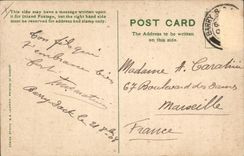 This side may have a message written upon it
for Inland Postage, but the right hand side
must be reserved for address and stamp only.
POST CARD
The Address to be written
on this side.
BARRY
Ton fils qui
t'embrasse bien
Barry Dock le 21
Madame A. Carabin
67 Boulevard des Dames
Marseille
France